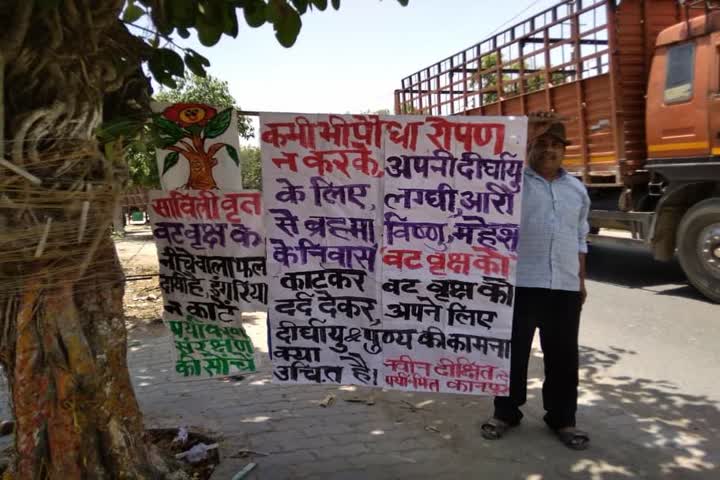 सावित्री वृत
वट वृक्ष के
नीचे वाला फल
न काटे
पर्यावरण
संरक्षण
की सोच
कभी भी पौधा रोपण
न करके, अपनी दीर्घायु
के लिए, लग्घी, आरी
से ब्रह्मा विष्णु, महेश
के निवास वट वृक्ष को
काटकर वट वृक्ष को
दर्द देकर, अपने लिए
दीर्घायु & पुण्य की कामना
क्या उचित है।
नवीन दीक्षित
पर्या-मित्र कानपुर